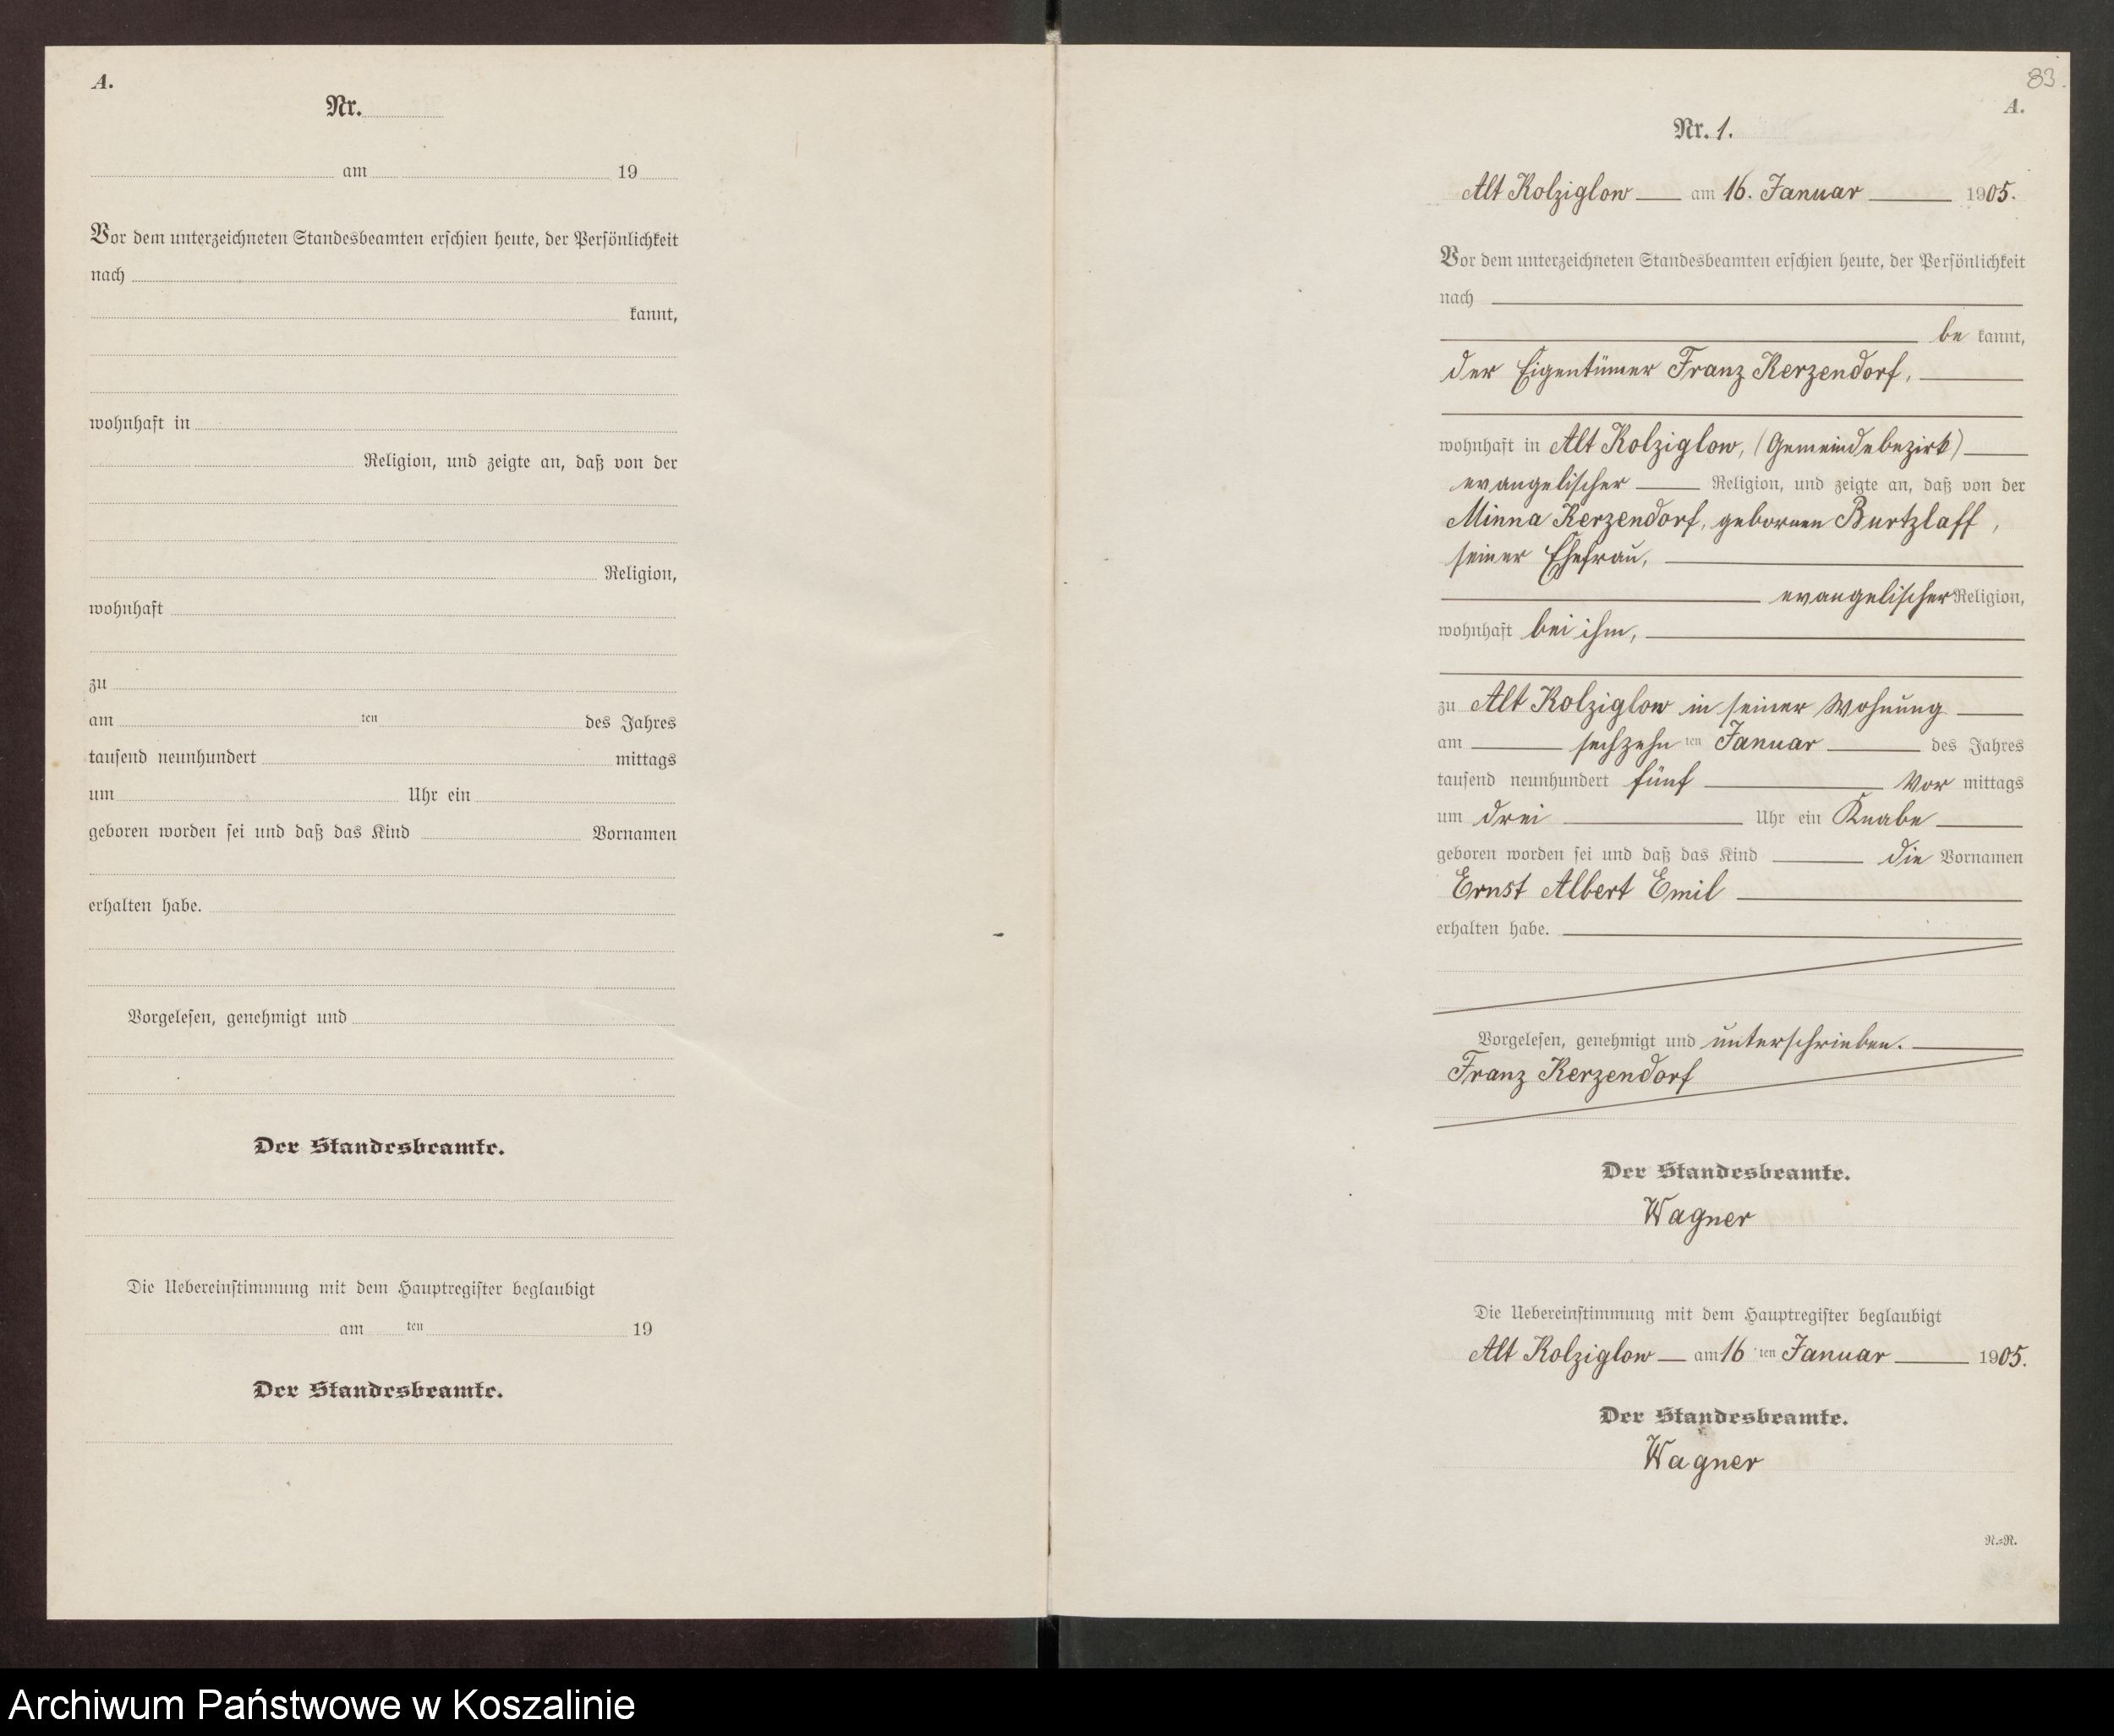 A.
Nr.
am 19
Vor dem unterzeichneten Standesbeamten erschien heute, der Persönlichkeit
nach
kannt,
wohnhaft in
Religion, und zeigte an, daß von der
Religion,
wohnhaft
zu
am ten des Jahres
tausend neunhundert mittags
um Uhr ein
geboren worden sei und daß das Kind Vornamen
erhalten habe.
Vorgelesen, genehmigt und
Der Standesbeamte.
Die Uebereinstimmung mit dem Hauptregister beglaubigt
am ten 19
Der Standesbeamte.
83.
A.
Nr. 1.
Alt Kolziglow am 16. Januar 1905.
Vor dem unterzeichneten Standesbeamten erschien heute, der Persönlichkeit
nach
be kannt,
der Eigentümer Franz Kerzendorf,
wohnhaft in Alt Kolziglow, (Gemeindebezirk)
evangelischer Religion, und zeigte an, daß von der
Minna Kerzendorf, gebornen Burtzlaff,
seiner Ehefrau,
evangelischer Religion,
wohnhaft bei ihm,
zu Alt Kolziglow in seiner Wohnung
am sechzehn ten Januar des Jahres
tausend neunhundert fünf Vor mittags
um drei Uhr ein Knabe
geboren worden sei und daß das Kind die Vornamen
Ernst Albert Emil
erhalten habe.
Vorgelesen, genehmigt und unterschrieben.
Franz Kerzendorf
Der Standesbeamte.
Wagner
Die Uebereinstimmung mit dem Hauptregister beglaubigt
Alt Kolziglow am 16 ten Januar 1905.
Der Standesbeamte.
Wagner
R.=R.
Archiwum Państwowe w Koszalinie